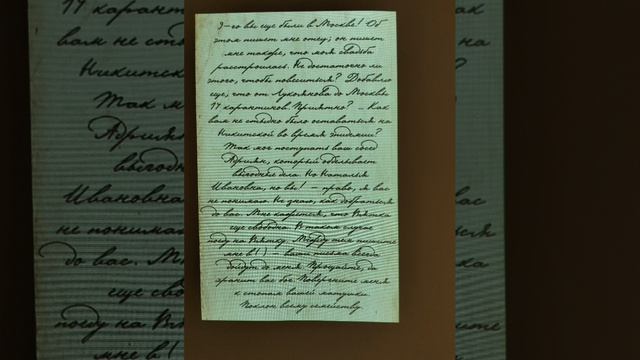 9-го вы еще были в Москве! Об
этом пишет мне отец; он пишет
мне также, что моя свадьба
расстроилась. Не достаточно ли
этого, чтобы повеситься? Добавлю
еще, что от Лукоянова до Москвы
14 карантинов. Приятно? – Как
вам не стыдно было оставаться на
Никитской во время эпидемии?
Так мог поступать ваш сосед
Адриян, который обделывает
выгодные дела. Но Наталья
Ивановна, но вы! – право, я вас
не понимаю. Не знаю, как добраться
до вас. Мне кажется, что Вятка
еще свободна. В таком случае
поеду на Вятку. Между тем пишите
мне в () – ваши письма всегда
дойдут до меня. Прощайте, да
хранит вас бог. Повергните меня
к стопам вашей матушки.
Поклон всему семейству.